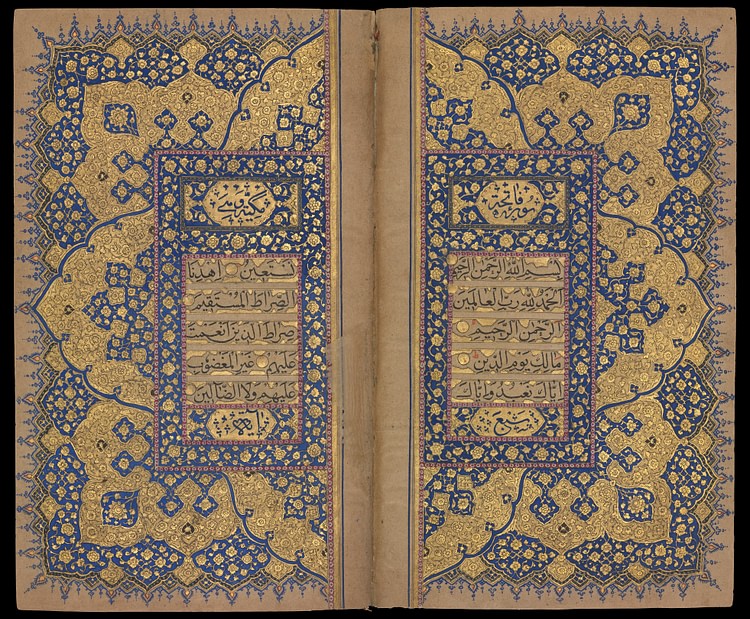 سورة فاتحة
بِسْمِ اللهِ الرَّحْمٰنِ الرَّحِيْمِ
اَلْحَمْدُ لِلّٰهِ رَبِّ الْعَالَمِيْنَ
الرَّحْمٰنِ الرَّحِيْمِ
مَالِكِ يَوْمِ الدِّيْنِ
اِيَّاكَ نَعْبُدُ وَاِيَّاكَ
سبع
مكية و
نَسْتَعِيْنُ اِهْدِنَا
الصِّرَاطَ الْمُسْتَقِيْمَ
صِرَاطَ الَّذِيْنَ اَنْعَمْتَ
عَلَيْهِمْ غَيْرِ الْمَغْضُوْبِ
عَلَيْهِمْ وَلَا الضَّالِّيْنَ